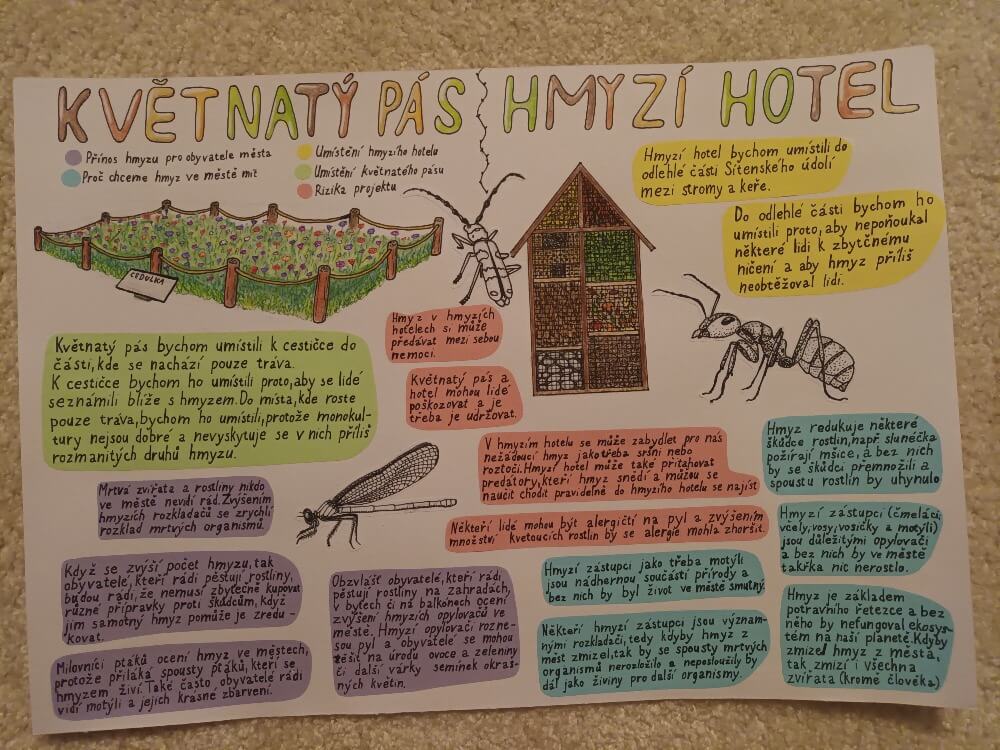 KVĚTNATÝ PÁS
HMYZÍ HOTEL
Přínos hmyzu pro obyvatele města
Proč chceme hmyz ve městě mít
Umístění hmyzího hotelu
Umístění květnatého pásu
Rizika projektu
CEDULKA
Hmyzí hotel bychom umístili do
odlehlé části Sítenského údolí
mezi stromy a keře.
Do odlehlé části bychom ho
umístili proto, aby nepoňoukal
některé lidi k zbytčnému
ničení a aby hmyz příliš
neobtěžoval lidi.
Hmyz v hmyzích
hotelech si může
předávat mezi sebou
nemoci.
Květnatý pás a
hotel mohou lidé
poškozovat a je
třeba je udržovat.
Květnatý pás bychom umístili k cestičce do
části, kde se nachází pouze tráva.
K cestičce bychom ho umístili proto, aby se lidé
seznámili blíže s hmyzem. Do místa, kde roste
pouze tráva, bychom ho umístili, protože monokul-
tury nejsou dobré a nevyskytuje se v nich příliš
rozmanitých druhů hmyzu.
V hmyzím hotelu se může zabydlet pro nás
nežádoucí hmyz jako třeba sršni nebo
roztoči. Hmyzí hotel může také přitahovat
predátory, kteří hmyz snědí a můžou se
naučit chodit pravidelně do hmyzího hotelu se najíst
Někteří lidé mohou být alergičtí na pyl a zvýšením
množství kvetoucích rostlin by se alergie mohla zhoršit.
Hmyz redukuje některé
škůdce rostlin, např. slunéčka
požírají mšice, a bez nich
by se škůdci přemnožili a
spoustu rostlin by uhynulo
Hmyzí zástupci (čmeláci,
včely, vosy, vosičky a motýli)
jsou důležitými opylovači
a bez nich by ve městě
takřka nic nerostlo.
Hmyz je základem
potravního řetezce a bez
něho by nefungoval ekosys-
tém na naší planetě. Kdyby
zmizel hmyz z města,
tak zmizí i všechna
zvířata (kromě člověka)
Hmyzí zástupci jako třeba motýli
jsou nádhernou součástí přírody a
bez nich by byl život ve městě smutný.
Někteří hmyzí zástupci jsou význam-
nými rozkladači, tedy kdyby hmyz z
měst zmizel, tak by se spousty mrtvých
organismů nerozložilo a neposloužily by
dál jako živiny pro další organismy.
Mrtvá zvířata a rostliny nikdo
ve městě nevidí rád. Zvýšením
hmyzích rozkladačů se zrychlí
rozklad mrtvých organismů.
Když se zvýší počet hmyzu, tak
obyvatelé, kteří rádi pěstují rostliny,
budou rádi, že nemusí zbytečně kupovat
různé přípravky proti škůdcům, když
jim samotný hmyz pomůže je zredu-
kovat.
Milovníci ptáků ocení hmyz ve městech,
protože přiláká spousty ptáků, kteří se
hmyzem živí. Také často obyvatelé rádi
vidí motýli a jejich krásné zbarvení.
Obzvlášť obyvatelé, kteří rádi
pěstují rostliny na zahradách,
v bytech či na balkónech ocení
zvýšení hmyzích opylovačů ve
městě. Hmyzí opylovači rozne-
sou pyl a obyvatelé se mohou
těšit na úrodu ovoce a zeleniny
či další várky semínek okras-
ných květin.